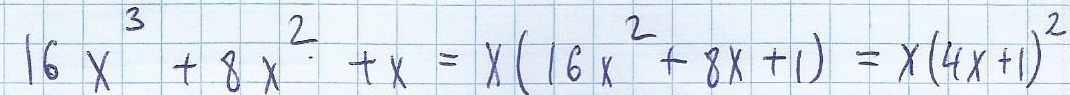 16x³ + 8x² + x = x(16x² + 8x + 1) = x(4x+1)²